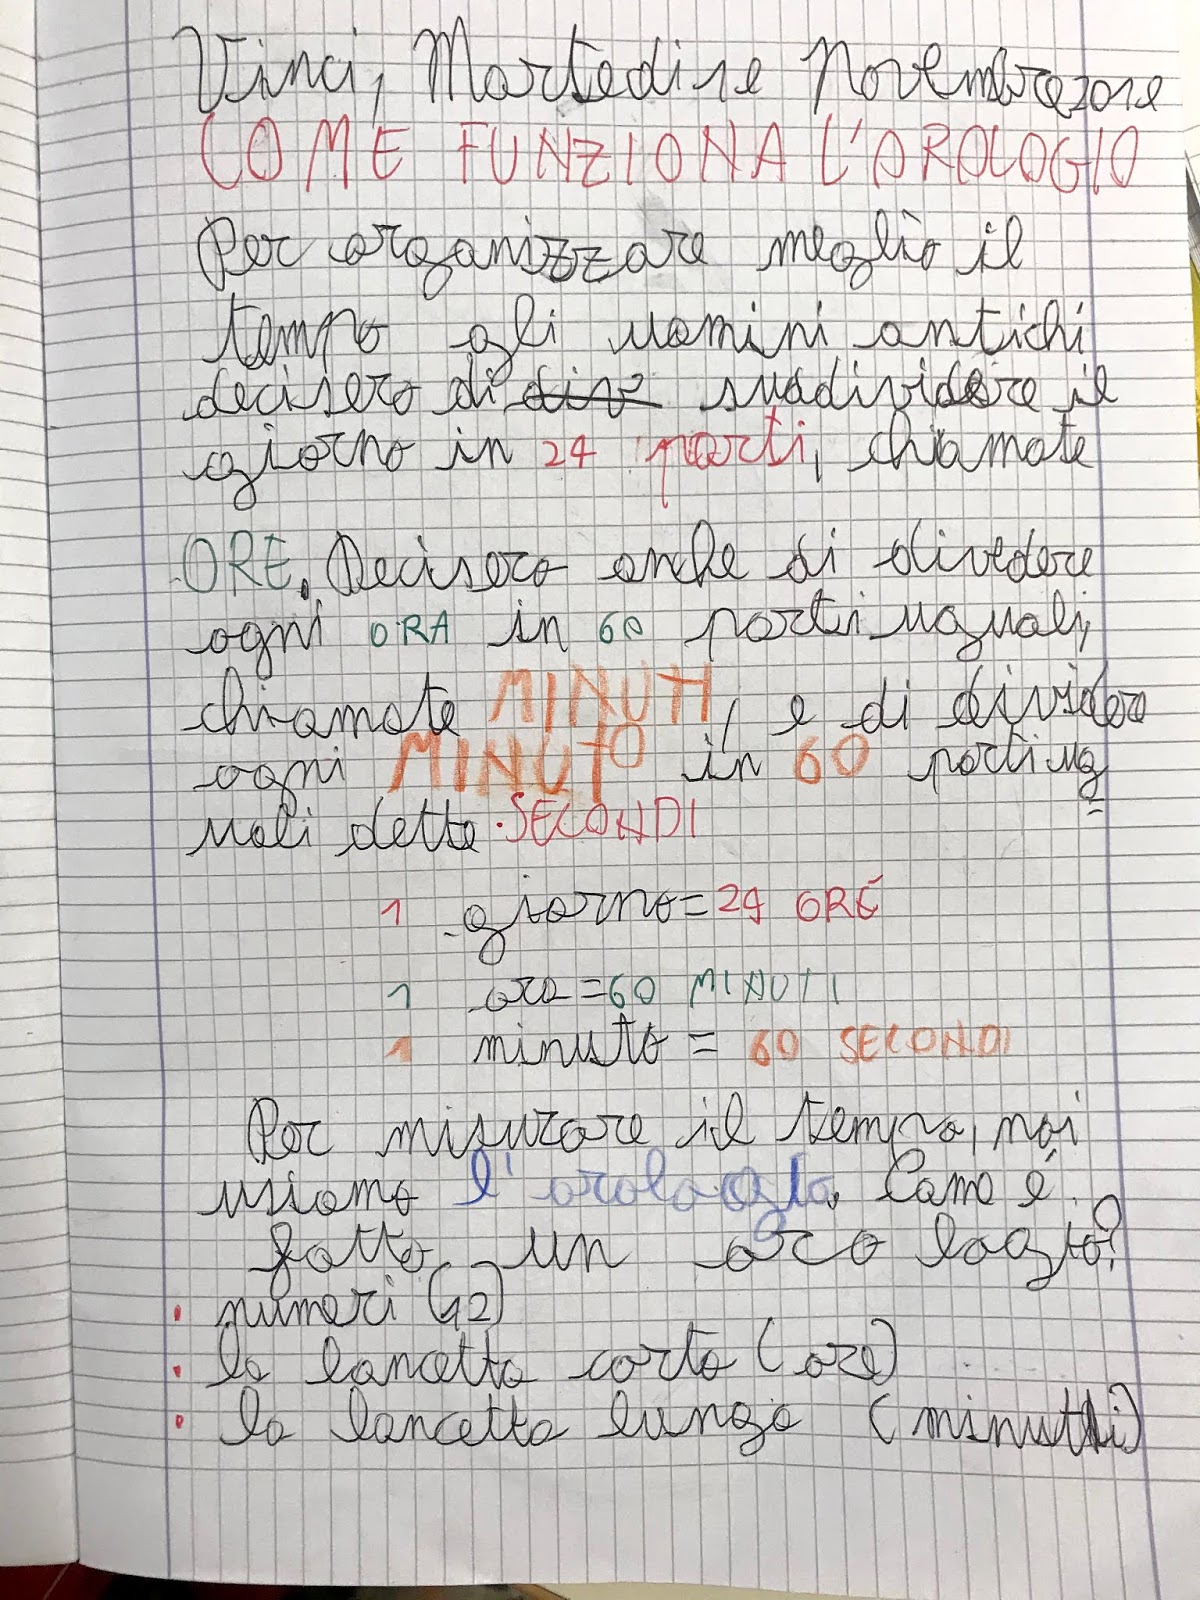 Vinci, Martedi 12 Novembre 2012
COME FUNZIONA L'OROLOGIO
Per organizzare meglio il
tempo gli uomini antichi
decisero di div suddividere il
giorno in 24 parti, chiamate
ORE. Decisero anche di dividere
ogni ORA in 60 parti uguali,
chiamate MINUTI, e di dividere
ogni MINUTO in 60 parti ug
uali dette SECONDI
1 giorno = 24 ORE
1 ora = 60 MINUTI
1 minuto = 60 SECONDI
Per misurare il tempo, noi
usiamo l'orologio. Come é
fatto un orologio?
• numeri (12)
• la lancetta corta (ore)
• la lancetta lunga (minuti)